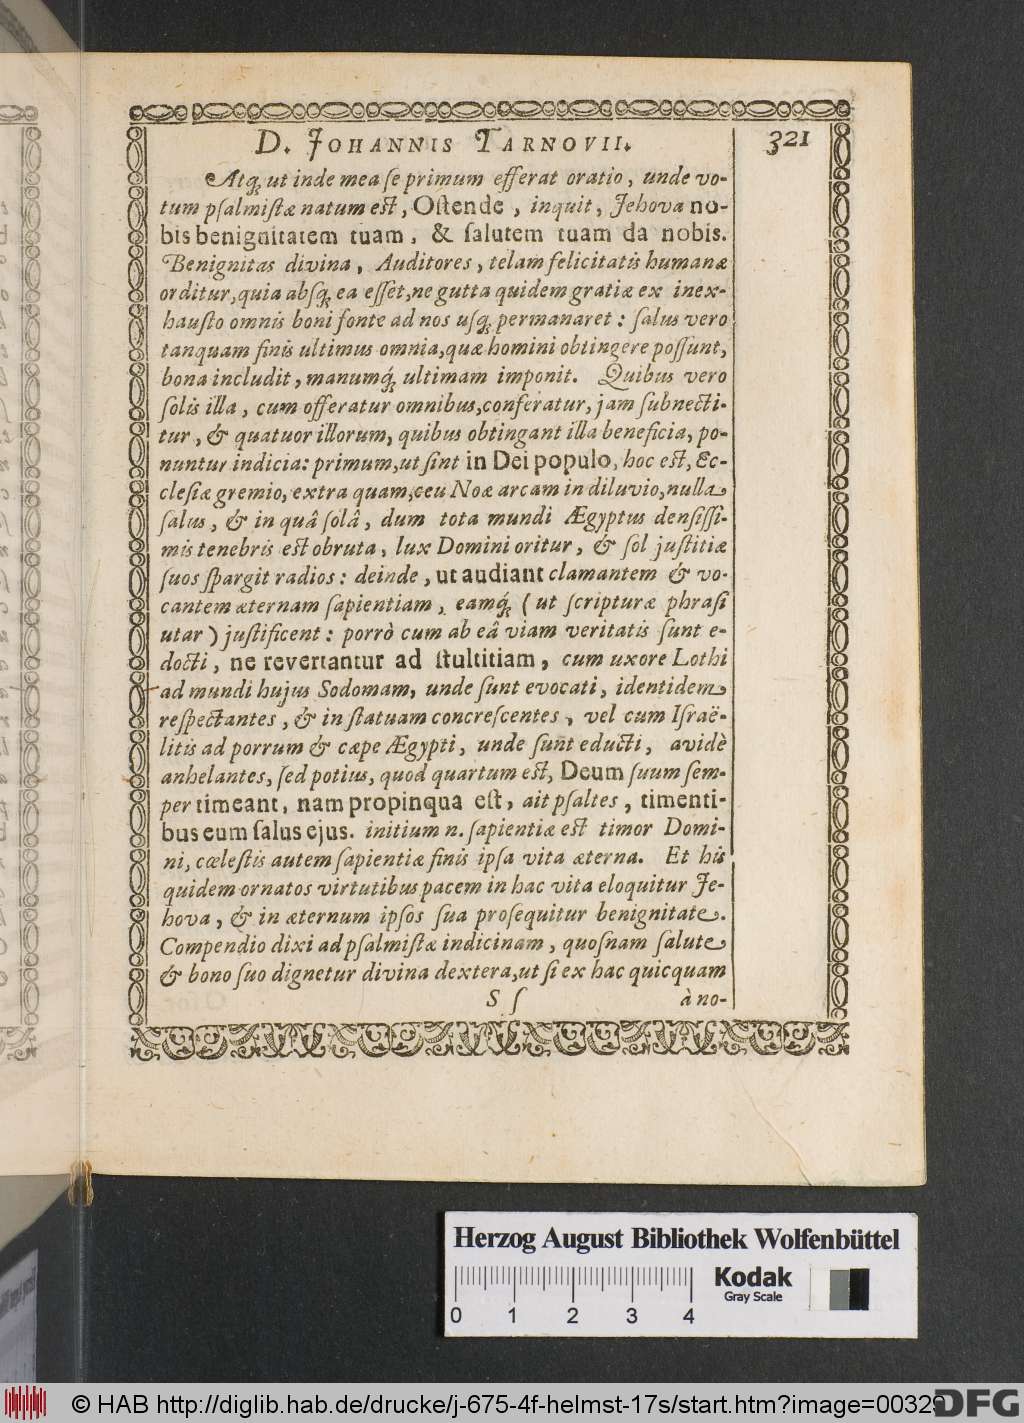 D. JOHANNIS TARNOVII.
321
Atq; ut inde mea ſe primum efferat oratio, unde vo-
tum pſalmiſtæ natum eſt, Oſtende, inquit, Jehova no-
bis benignitatem tuam, & ſalutem tuam da nobis.
Benignitas divina, Auditores, telam felicitatis humanæ
orditur, quia abſq; ea eſſet, ne gutta quidem gratiæ ex inex-
hauſto omnis boni fonte ad nos uſq; permanaret: ſalus vero
tanquam finis ultimus omnia, quæ homini obtingere poſſunt,
bona includit, manumq́; ultimam imponit. Quibus vero
ſolis illa, cum offeratur omnibus, conferatur, jam ſubnecti-
tur, & quatuor illorum, quibus obtingant illa beneficia, po-
nuntur indicia: primum, ut ſint in Dei populo, hoc eſt, Ec-
cleſiæ gremio, extra quam, ceu Noæ arcam in diluvio, nulla
ſalus, & in quâ ſolâ, dum tota mundi Ægyptus denſiſſi-
mis tenebris eſt obruta, lux Domini oritur, & ſol juſtitiæ
ſuos ſpargit radios: deinde, ut audiant clamantem & vo-
cantem æternam ſapientiam, eamq́; (ut ſcripturæ phraſi
utar) juſtificent: porrò cum ab eâ viam veritatis ſunt e-
docti, ne revertantur ad ſtultitiam, cum uxore Lothi
ad mundi hujus Sodomam, unde ſunt evocati, identidem
reſpectantes, & in ſtatuam concreſcentes, vel cum Iſraë-
litis ad porrum & cæpe Ægypti, unde ſunt educti, avidè
anhelantes, ſed potius, quod quartum eſt, Deum ſuum ſem-
per timeant, nam propinqua eſt, ait pſaltes, timenti-
bus eum ſalus ejus. initium n. ſapientiæ eſt timor Domi-
ni, cœleſtis autem ſapientiæ finis ipſa vita æterna. Et his
quidem ornatos virtutibus pacem in hac vita eloquitur Je-
hova, & in æternum ipſos ſua proſequitur benignitate.
Compendio dixi ad pſalmiſtæ indicinam, quoſnam ſalute
& bono ſuo dignetur divina dextera, ut ſi ex hac quicquam
S ſ
à no-
Herzog August Bibliothek Wolfenbüttel
Kodak
Gray Scale
0 1 2 3 4
© HAB http://diglib.hab.de/drucke/j-675-4f-helmst-17s/start.htm?image=00329
DFG